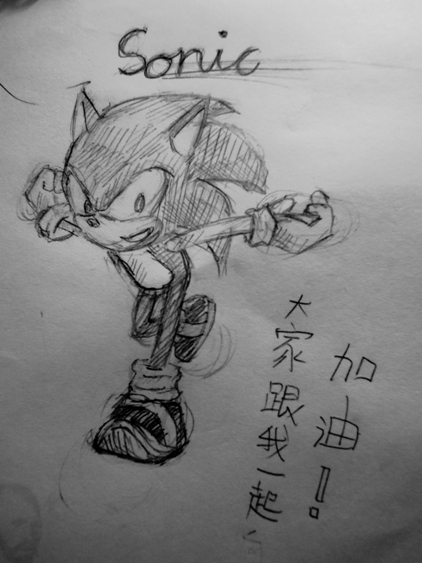 Sonic
大家跟我一起
加油！